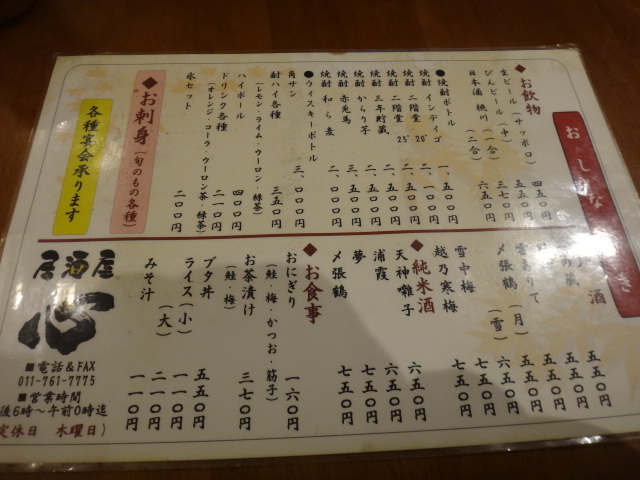 おしながき
◆お飲物
生ビール（サッポロ） 四五〇円
びんビール（中） 五五〇円
日本酒 桃川（一合） 三七〇円
（二合） 六五〇円
●焼酎ボトル
焼酎 インディゴ 20° 一、五〇〇円
焼酎 二階堂 20° 二、一〇〇円
焼酎 二階堂 25° 二、五〇〇円
焼酎 三年貯蔵
焼酎 からり芋
焼酎 赤兎馬
焼酎 和ら麦
●ウイスキーボトル
角サン 三、〇〇〇円
酎ハイ各種 三五〇円
（レモン・ライム・ウーロン・緑茶）
ハイボール 四〇〇円
ドリンク各種 二一〇円
（オレンジ・コーラ・ウーロン茶・緑茶）
氷セット 二〇〇円
◆お刺身（旬のもの各種）
各種宴会承ります
酒
蔵 五五〇円
雪
〆張鶴（月）
（雪） 六五〇円
雪中梅
越乃寒梅 七五〇円
◆純米酒
天神囃子 六五〇円
浦霞 六五〇円
夢 七五〇円
〆張鶴 七五〇円
◆お食事
おにぎり 一六〇円
（鮭・梅・かつお・筋子）
お茶漬け 三七〇円
（鮭・梅）
ブタ丼 五五〇円
ライス（小） 一一〇円
（大） 二一〇円
みそ汁 一一〇円
居酒屋
心
■電話＆FAX
011-761-7775
■営業時間
後6時～午前0時迄
定休日 水曜日）